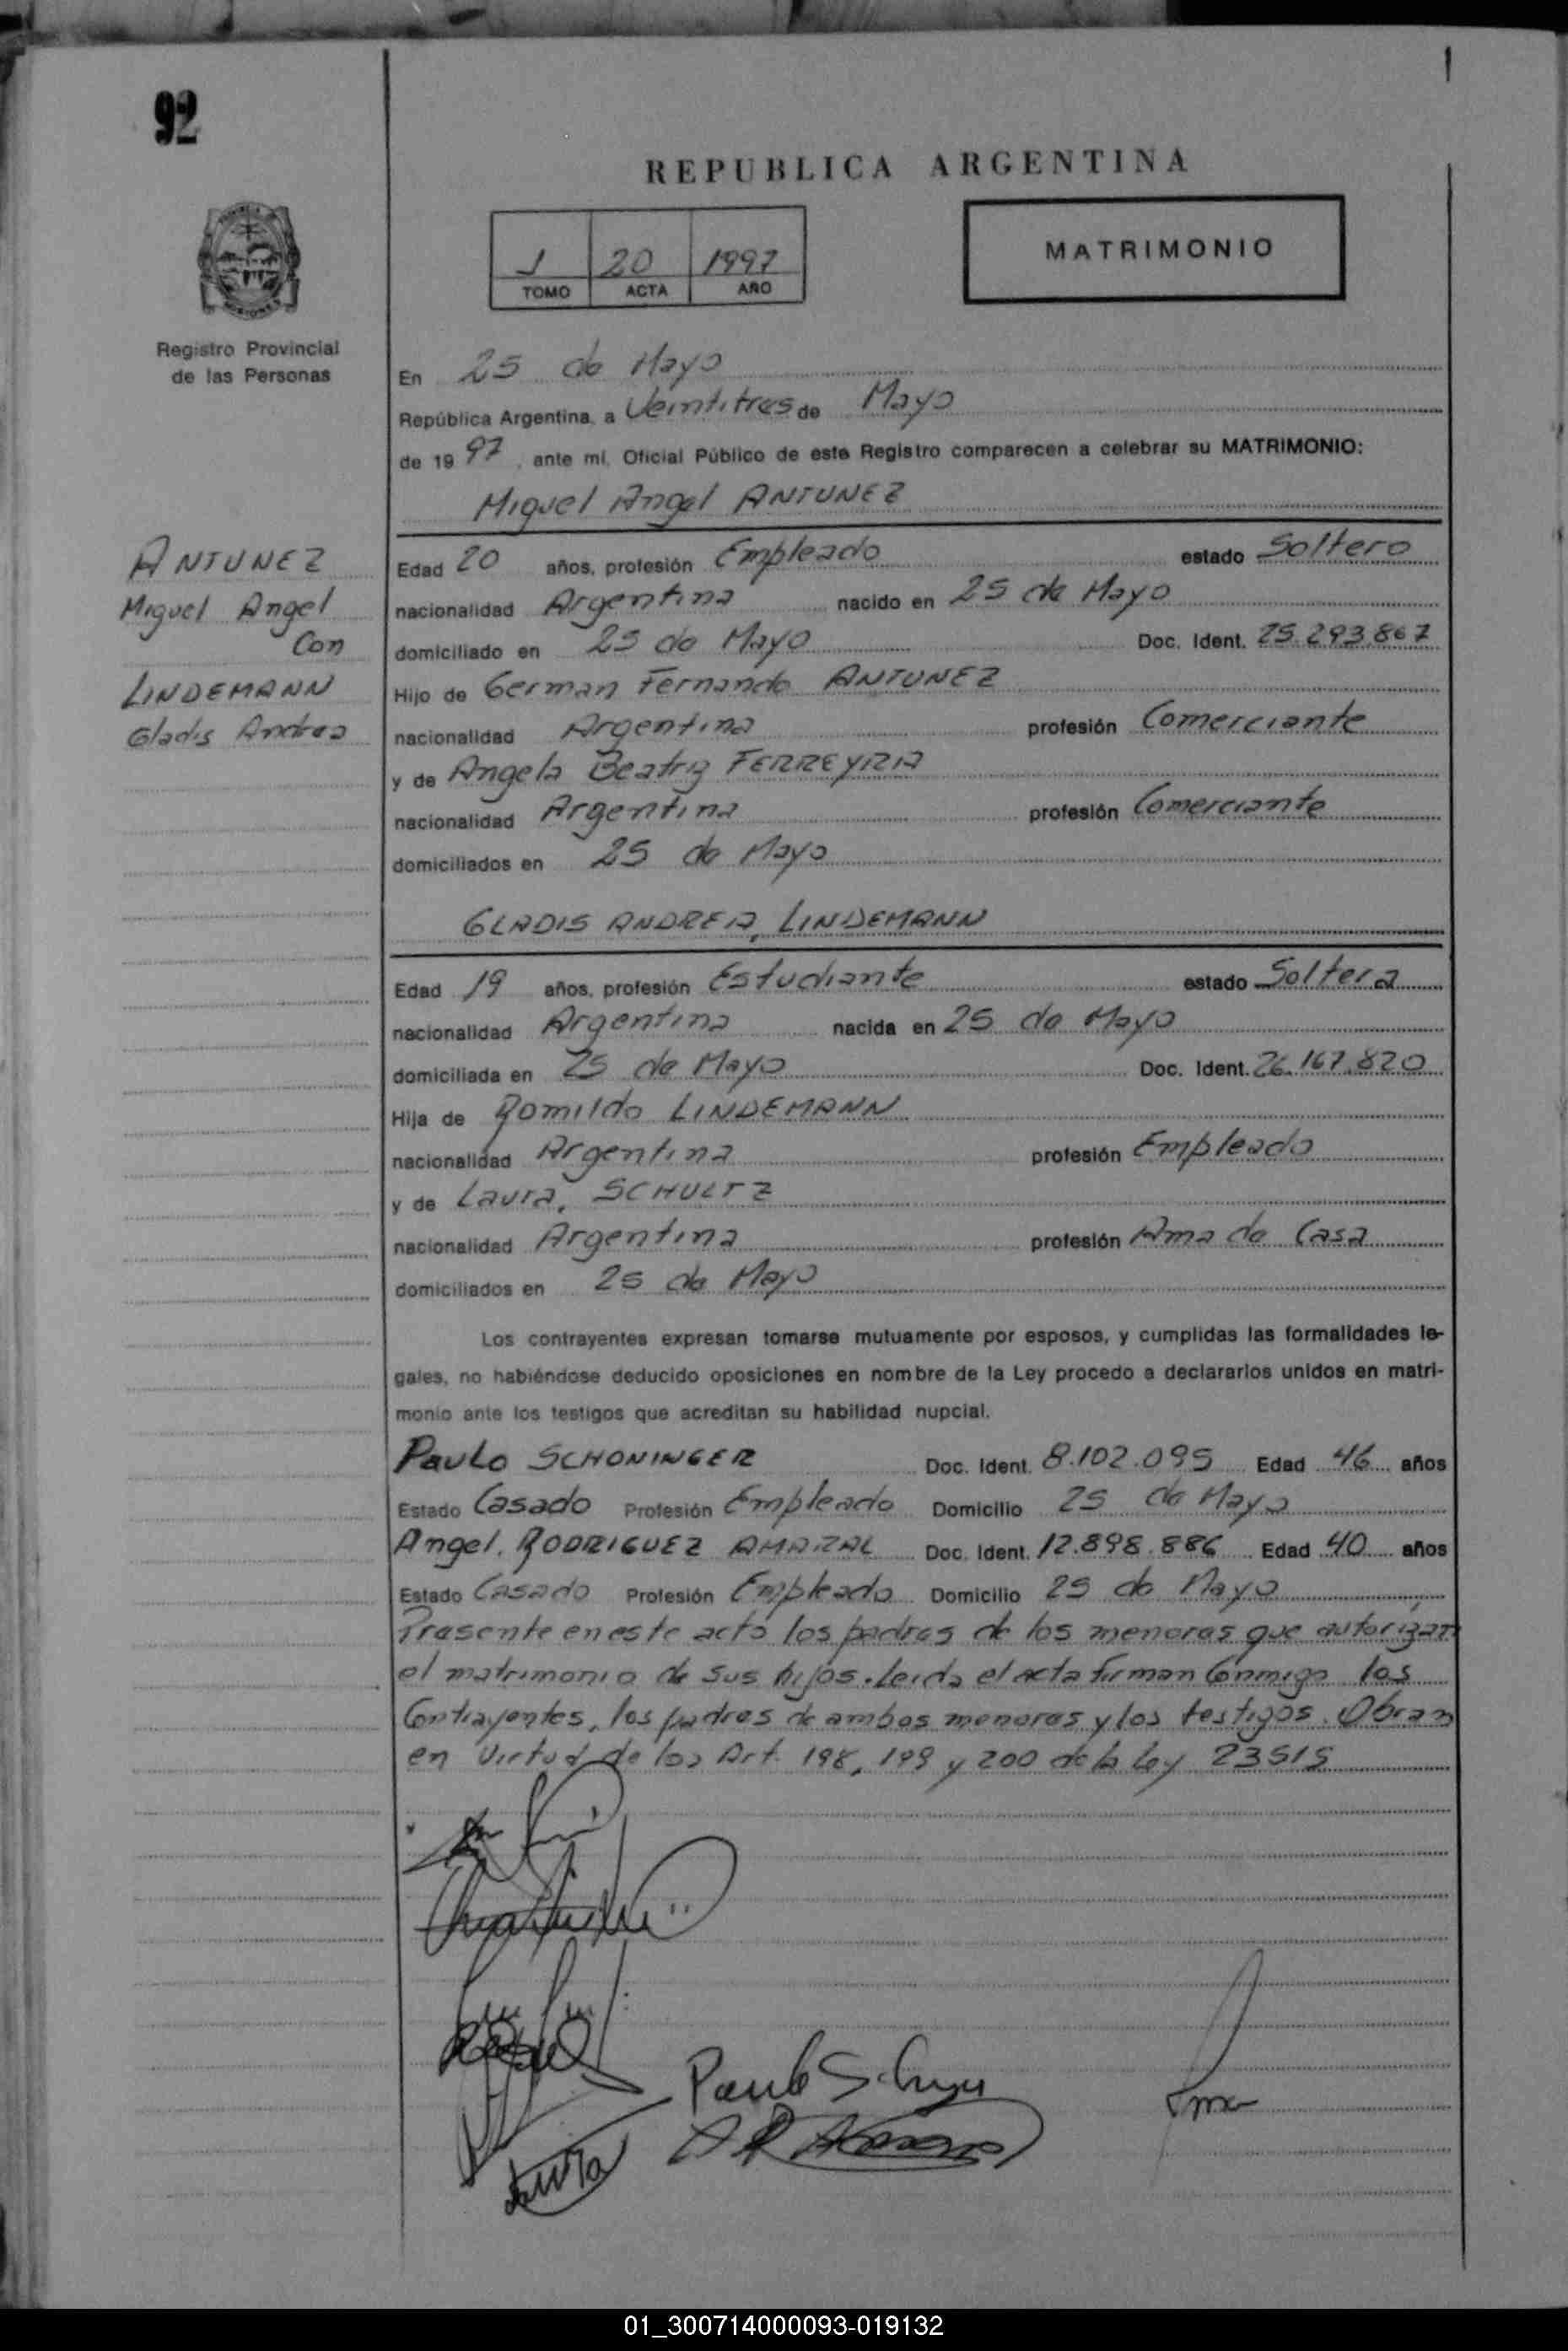 92
REPUBLICA ARGENTINA
1 20 1997
TOMO ACTA AÑO
MATRIMONIO
Registro Provincial
de las Personas
En 25 de Mayo
República Argentina, a Veintitres de Mayo
de 19 97, ante mí, Oficial Público de este Registro comparecen a celebrar su MATRIMONIO:
Miguel Angel ANTUNEZ
ANTUNEZ
Miguel Angel
Con
LINDEMANN
Gladis Andrea
Edad 20 años, profesión Empleado estado Soltero
nacionalidad Argentina nacido en 25 de Mayo
domiciliado en 25 de Mayo Doc. Ident. 25.293.867
Hijo de German Fernando ANTUNEZ
nacionalidad Argentina profesión Comerciante
y de Angela Beatriz FERREYRA
nacionalidad Argentina profesión Comerciante
domiciliados en 25 de Mayo
GLADIS ANDREA, LINDEMANN
Edad 19 años, profesión Estudiante estado Soltera
nacionalidad Argentina nacida en 25 de Mayo
domiciliada en 25 de Mayo Doc. Ident. 26.167.820
Hija de Romildo LINDEMANN
nacionalidad Argentina profesión Empleado
y de Laura, SCHULTZ
nacionalidad Argentina profesión Ama de Casa
domiciliados en 25 de Mayo
Los contrayentes expresan tomarse mutuamente por esposos, y cumplidas las formalidades le-
gales, no habiéndose deducido oposiciones en nombre de la Ley procedo a declararlos unidos en matri-
monio ante los testigos que acreditan su habilidad nupcial.
Paulo SCHONINGER Doc. Ident. 8.102.095 Edad 46 años
Estado Casado Profesión Empleado Domicilio 25 de Mayo
Angel, RODRIGUEZ AMARAL Doc. Ident. 12.898.886 Edad 40 años
Estado Casado Profesión Empleado Domicilio 25 de Mayo
Presente en este acto los padres de los menores que autorizan
el matrimonio de sus hijos. Leida el acta firman Conmigo los
Contrayentes, los padres de ambos menores y los testigos. Obran
en Virtud de los Art. 198, 199 y 200 de la Ley 23515
Laura
01_300714000093-019132